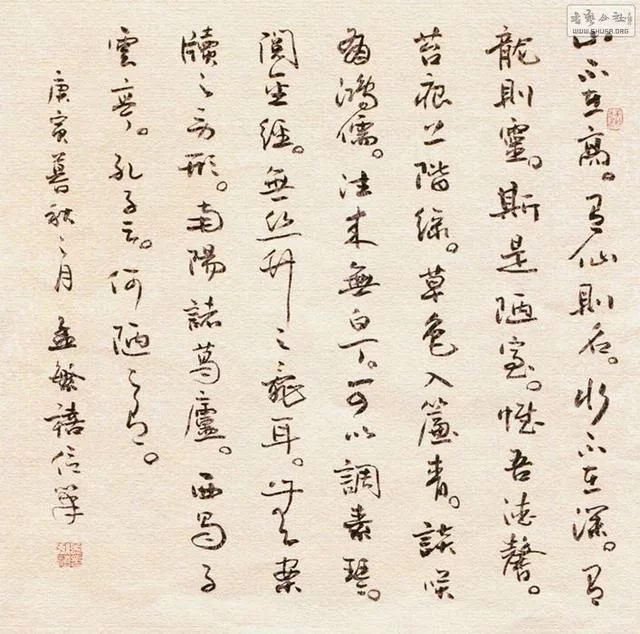 山不在高。有仙則名。水不在深。有
龍則靈。斯是陋室。惟吾德馨。
苔痕上階綠。草色入簾青。談笑
有鴻儒。往來無白丁。可以調素琴。
閱金經。無丝竹之亂耳。无案
牘之勞形。南陽諸葛廬。西蜀子
雲亭。孔子云。何陋之有。
庚寅暮秋之月 孟繁禧信筆
WWW.SHUFA.ORG